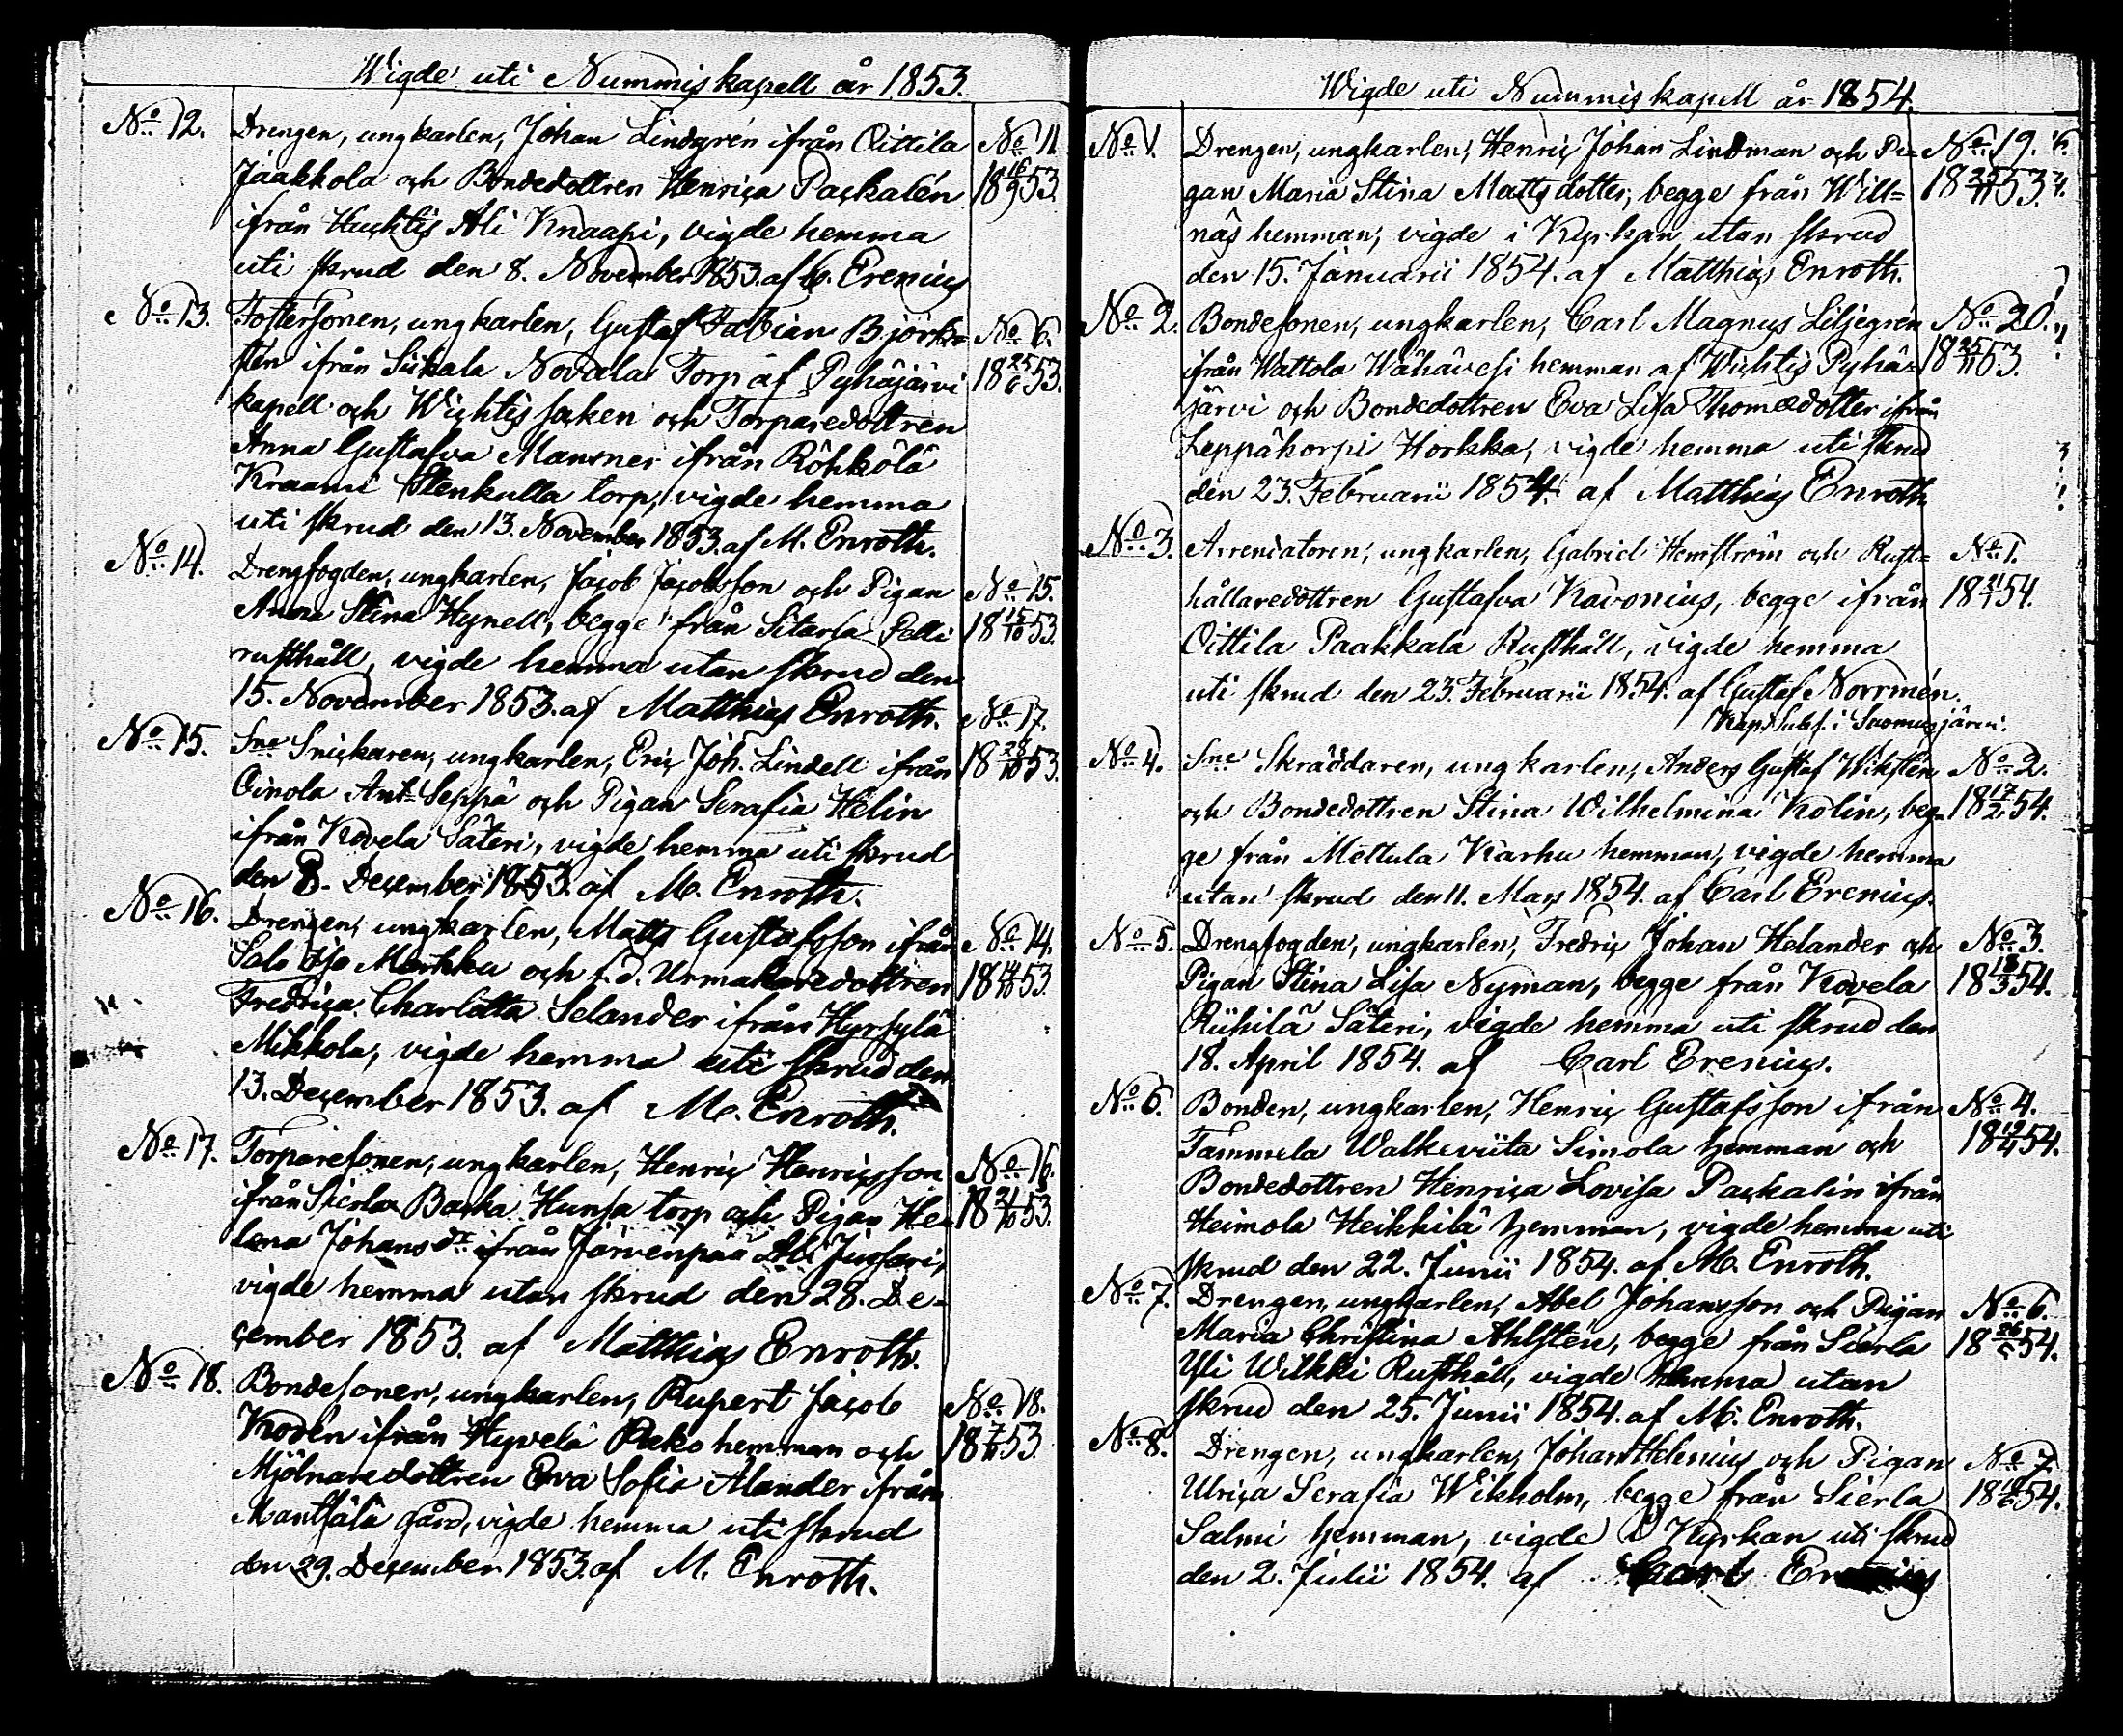 Wigde uti Nummis kapell år 1853.
No 12. Drengen, ungkarlen, Johan Lindgrén ifrån Oittila No 11
Jaakkola och Bondedottren Henrica Packalén 18 16/9 53.
ifrån Huhtis Ali Knaapi, vigde hemma
uti skrud den 8. November 1853. af C. Erenius
No 13. Fostersonen, ungkarlen, Gustaf Fabian Björk= No 6.
sten ifrån Siikala Nodala Torp af Pyhäjärvi 18 25/6 53.
kapell och Wichtis socken och Torparedottren
Anna Gustafva Mansner ifrån Röhkölä
Kraami Stenkulla torp, vigde hemma
uti skrud den 13. November 1853. af M. Enroth.
No 14. Drengfogden, ungkarlen, Jacob Jacobsson och Pigan No 15.
Anna Stina Hynell, begge från Sitarla Pelli 18 15/10 53.
rusthåll, vigde hemma utan skrud den
15. November 1853. af Matthias Enroth. No 17.
No 15. Sne Snickaren, ungkarlen, Eric Joh. Lindell ifrån 18 28/10 53.
Oinola Ant Seppä och Pigan Serafia Helin
ifrån Kovela Säteri, vigde hemma uti skrud
den 8. December 1853. af M. Enroth.
No 16. Drengen, ungkarlen, Matts Gustafsson ifrån No 14.
Salo Iso Markku och f. d. Urmakaredottren 18 14/10 53.
Fredrica Charlotta Selander ifrån Hyrsylä
Mikkola, vigde hemma uti skrud den
13. December 1853. af M. Enroth.
No 17. Torparesonen, ungkarlen, Henric Henricsson No 16.
ifrån Sierla Backa Hunsa torp och Pigan He= 18 21/10 53.
lena Johansdr ifrån Järvenpää Ali Jussari,
vigde hemma utan skrud den 28. De=
cember 1853. af Matthias Enroth.
No 18. Bondesonen, ungkarlen, Rupert Jacob No 18.
Kodén ifrån Hyvelä Pieko hemman och 18 7/11 53.
Mjölnaredottren Eva Sofia Alander ifrån
Mantsälä gård, vigde hemma uti skrud
den 29. December 1853. af M. Enroth.
Wigde uti Nummis kapell år 1854.
No 1. Drengen, ungkarlen, Henric Johan Lindman och Pi= No 19.
gan Maria Stina Mattsdotter, begge från Will= 18 25/11 53.
näs hemman, vigde i Kyrkan utan skrud
den 15. Januarii 1854. af Matthias Enroth.
No 2. Bondesonen, ungkarlen, Carl Magnus Liljegrén No 20.
ifrån Wattola Wähävesi hemman af Wichtis Pyhä= 18 25/11 53.
järvi och Bondedottren Eva Lisa Thomædotter ifrån
Leppäkorpi Horkka, vigde hemma uti skrud
den 23. Februarii 1854. af Matthias Enroth
No 3. Arrendatoren, ungkarlen, Gabriel Hemström och Rust= No 1.
hållaredottren Gustafva Kavonius, begge ifrån 18 21/1 54.
Oittila Paakkala Rusthåll, vigde hemma
uti skrud den 23. Februarii 1854. af Gustaf Norrmén.
Kap. Subst. i Sammasjärvi.
No 4. Sne Skräddaren, ungkarlen, Anders Gustaf Wiksten No 2.
och Bondedottren Stina Wilhelmina Kolin, beg= 18 17/2 54.
ge från Mettula Karhu hemman, vigde hemma
utan skrud den 11. Mars 1854. af Carl Erenius.
No 5. Drengfogden, ungkarlen, Fredric Johan Helander och No 3.
Pigan Stina Lisa Nyman, begge från Kovela 18 18/3 54.
Riihilä Säteri, vigde hemma uti skrud den
18. April 1854. af Carl Erenius.
No 6. Bonden, ungkarlen, Henric Gustafsson ifrån No 4.
Tammela Walkeviita Simola hemman och 18 19/4 54.
Bondedottren Henrica Lovisa Packalin ifrån
Heimola Heikkilä hemman, vigde hemma uti
skrud den 22. Junii 1854. af M. Enroth.
No 7. Drengen, ungkarlen, Abel Johansson och Pigan No 6.
Maria Christina Ahlstén, begge från Sierla 18 26/5 54.
Yli Wilkki Rusthåll, vigde hemma utan
skrud den 25. Junii 1854. af M. Enroth.
No 8. Drengen, ungkarlen, Johan Helenius och Pigan No 7.
Ulrica Serafia Wikholm, begge från Sierla 18 54.
Salmi hemman, vigde i Kyrkan uti skrud
den 2. Julii 1854. af Carl Erenius